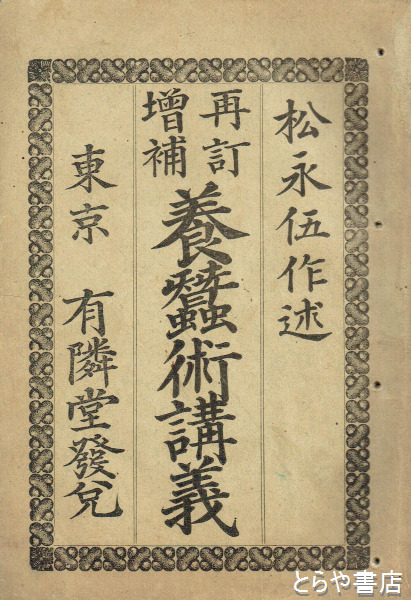 松永伍作述
再訂
増補
養蠶術講義
東京 有隣堂發兌
とらや書店